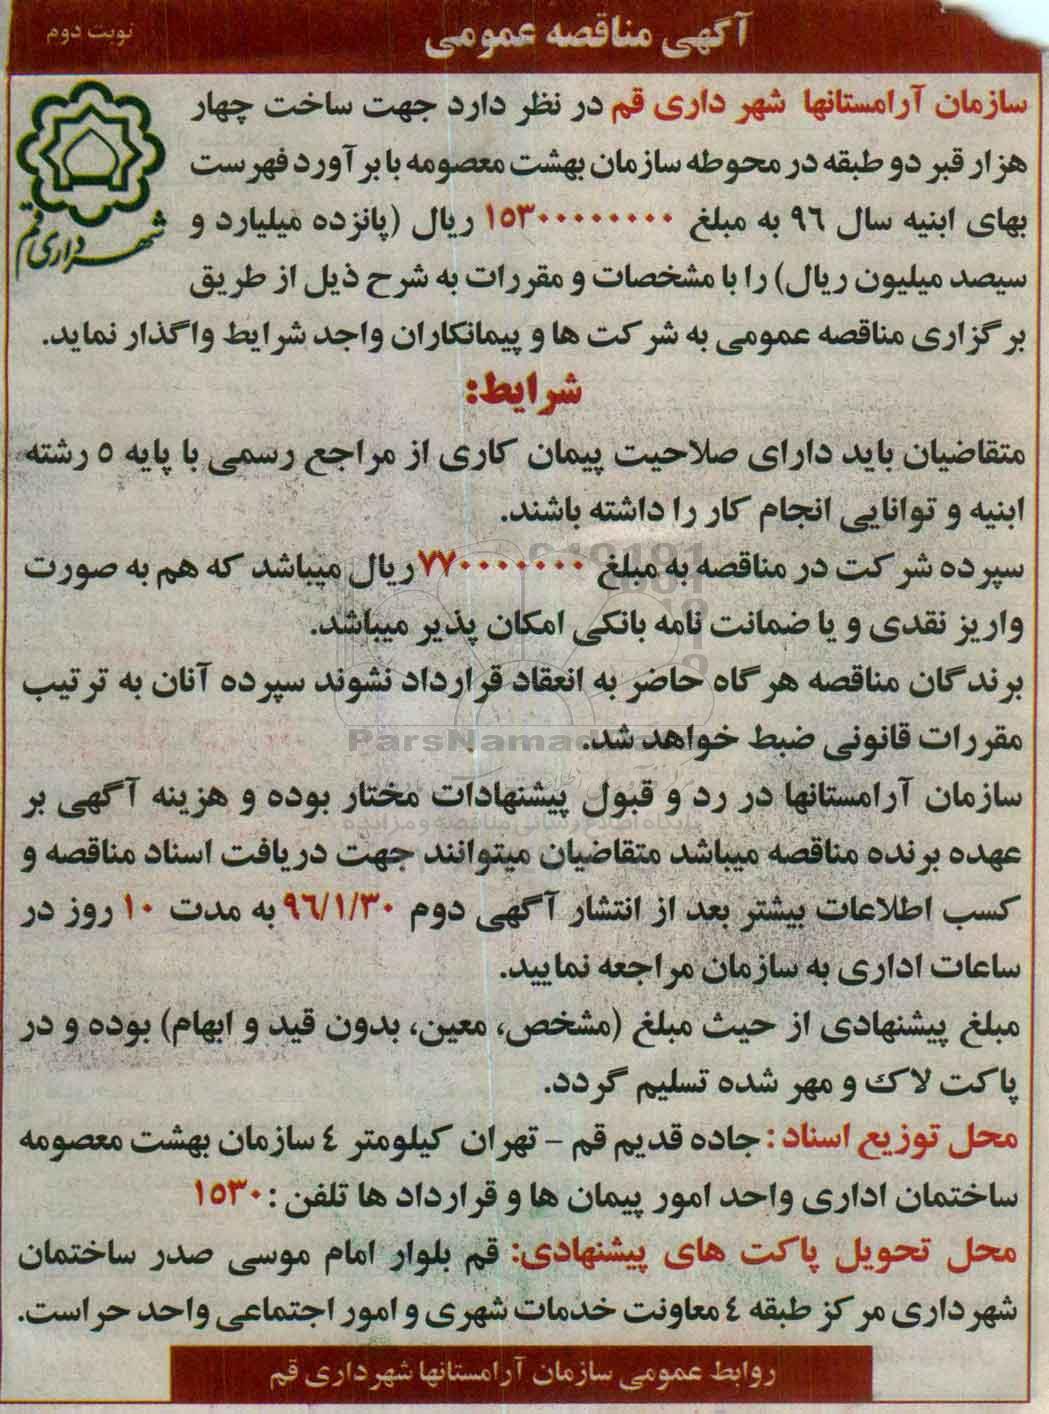 آگهی مناقصه عمومی
نوبت دوم
سازمان آرامستانها شهر داری قم در نظر دارد جهت ساخت چهار
هزار قبر دو طبقه در محوطه سازمان بهشت معصومه با بر آورد فهرست
بهای ابنیه سال ۹۶ به مبلغ ۱۵۳۰۰۰۰۰۰۰۰ ریال (پانزده میلیارد و
سیصد میلیون ریال) را با مشخصات و مقررات به شرح ذیل از طریق
بر گزاری مناقصه عمومی به شرکت ها و پیمانکاران واجد شرایط واگذار نماید.
شهرداری قم
شرایط:
متقاضیان باید دارای صلاحیت پیمان کاری از مراجع رسمی با پایه ۵ رشته
ابنیه و توانایی انجام کار را داشته باشند.
سپرده شرکت در مناقصه به مبلغ ۷۷۰۰۰۰۰۰۰ ریال میباشد که هم به صورت
واریز نقدی و یا ضمانت نامه بانکی امکان پذیر میباشد.
برندگان مناقصه هر گاه حاضر به انعقاد قرارداد نشوند سپرده آنان به ترتیب
مقررات قانونی ضبط خواهد شد.
سازمان آرامستانها در رد و قبول پیشنهادات مختار بوده و هزینه آگهی بر
عهده برنده مناقصه میباشد متقاضیان میتوانند جهت دریافت اسناد مناقصه و
کسب اطلاعات بیشتر بعد از انتشار آگهی دوم ۹۶/۱/۳۰ به مدت ۱۰ روز در
ساعات اداری به سازمان مراجعه نمایید.
مبلغ پیشنهادی از حیث مبلغ (مشخص، معین، بدون قید و ابهام) بوده و در
پاکت لاک و مهر شده تسلیم گردد.
محل توزیع اسناد : جاده قدیم قم - تهران کیلومتر ٤ سازمان بهشت معصومه
ساختمان اداری واحد امور پیمان ها و قرارداد ها تلفن : ۱۵۳۰
محل تحویل پاکت های پیشنهادی: قم بلوار امام موسی صدر ساختمان
شهرداری مرکز طبقه ٤ معاونت خدمات شهری و امور اجتماعی واحد حراست.
روابط عمومی سازمان آرامستانها شهرداری قم